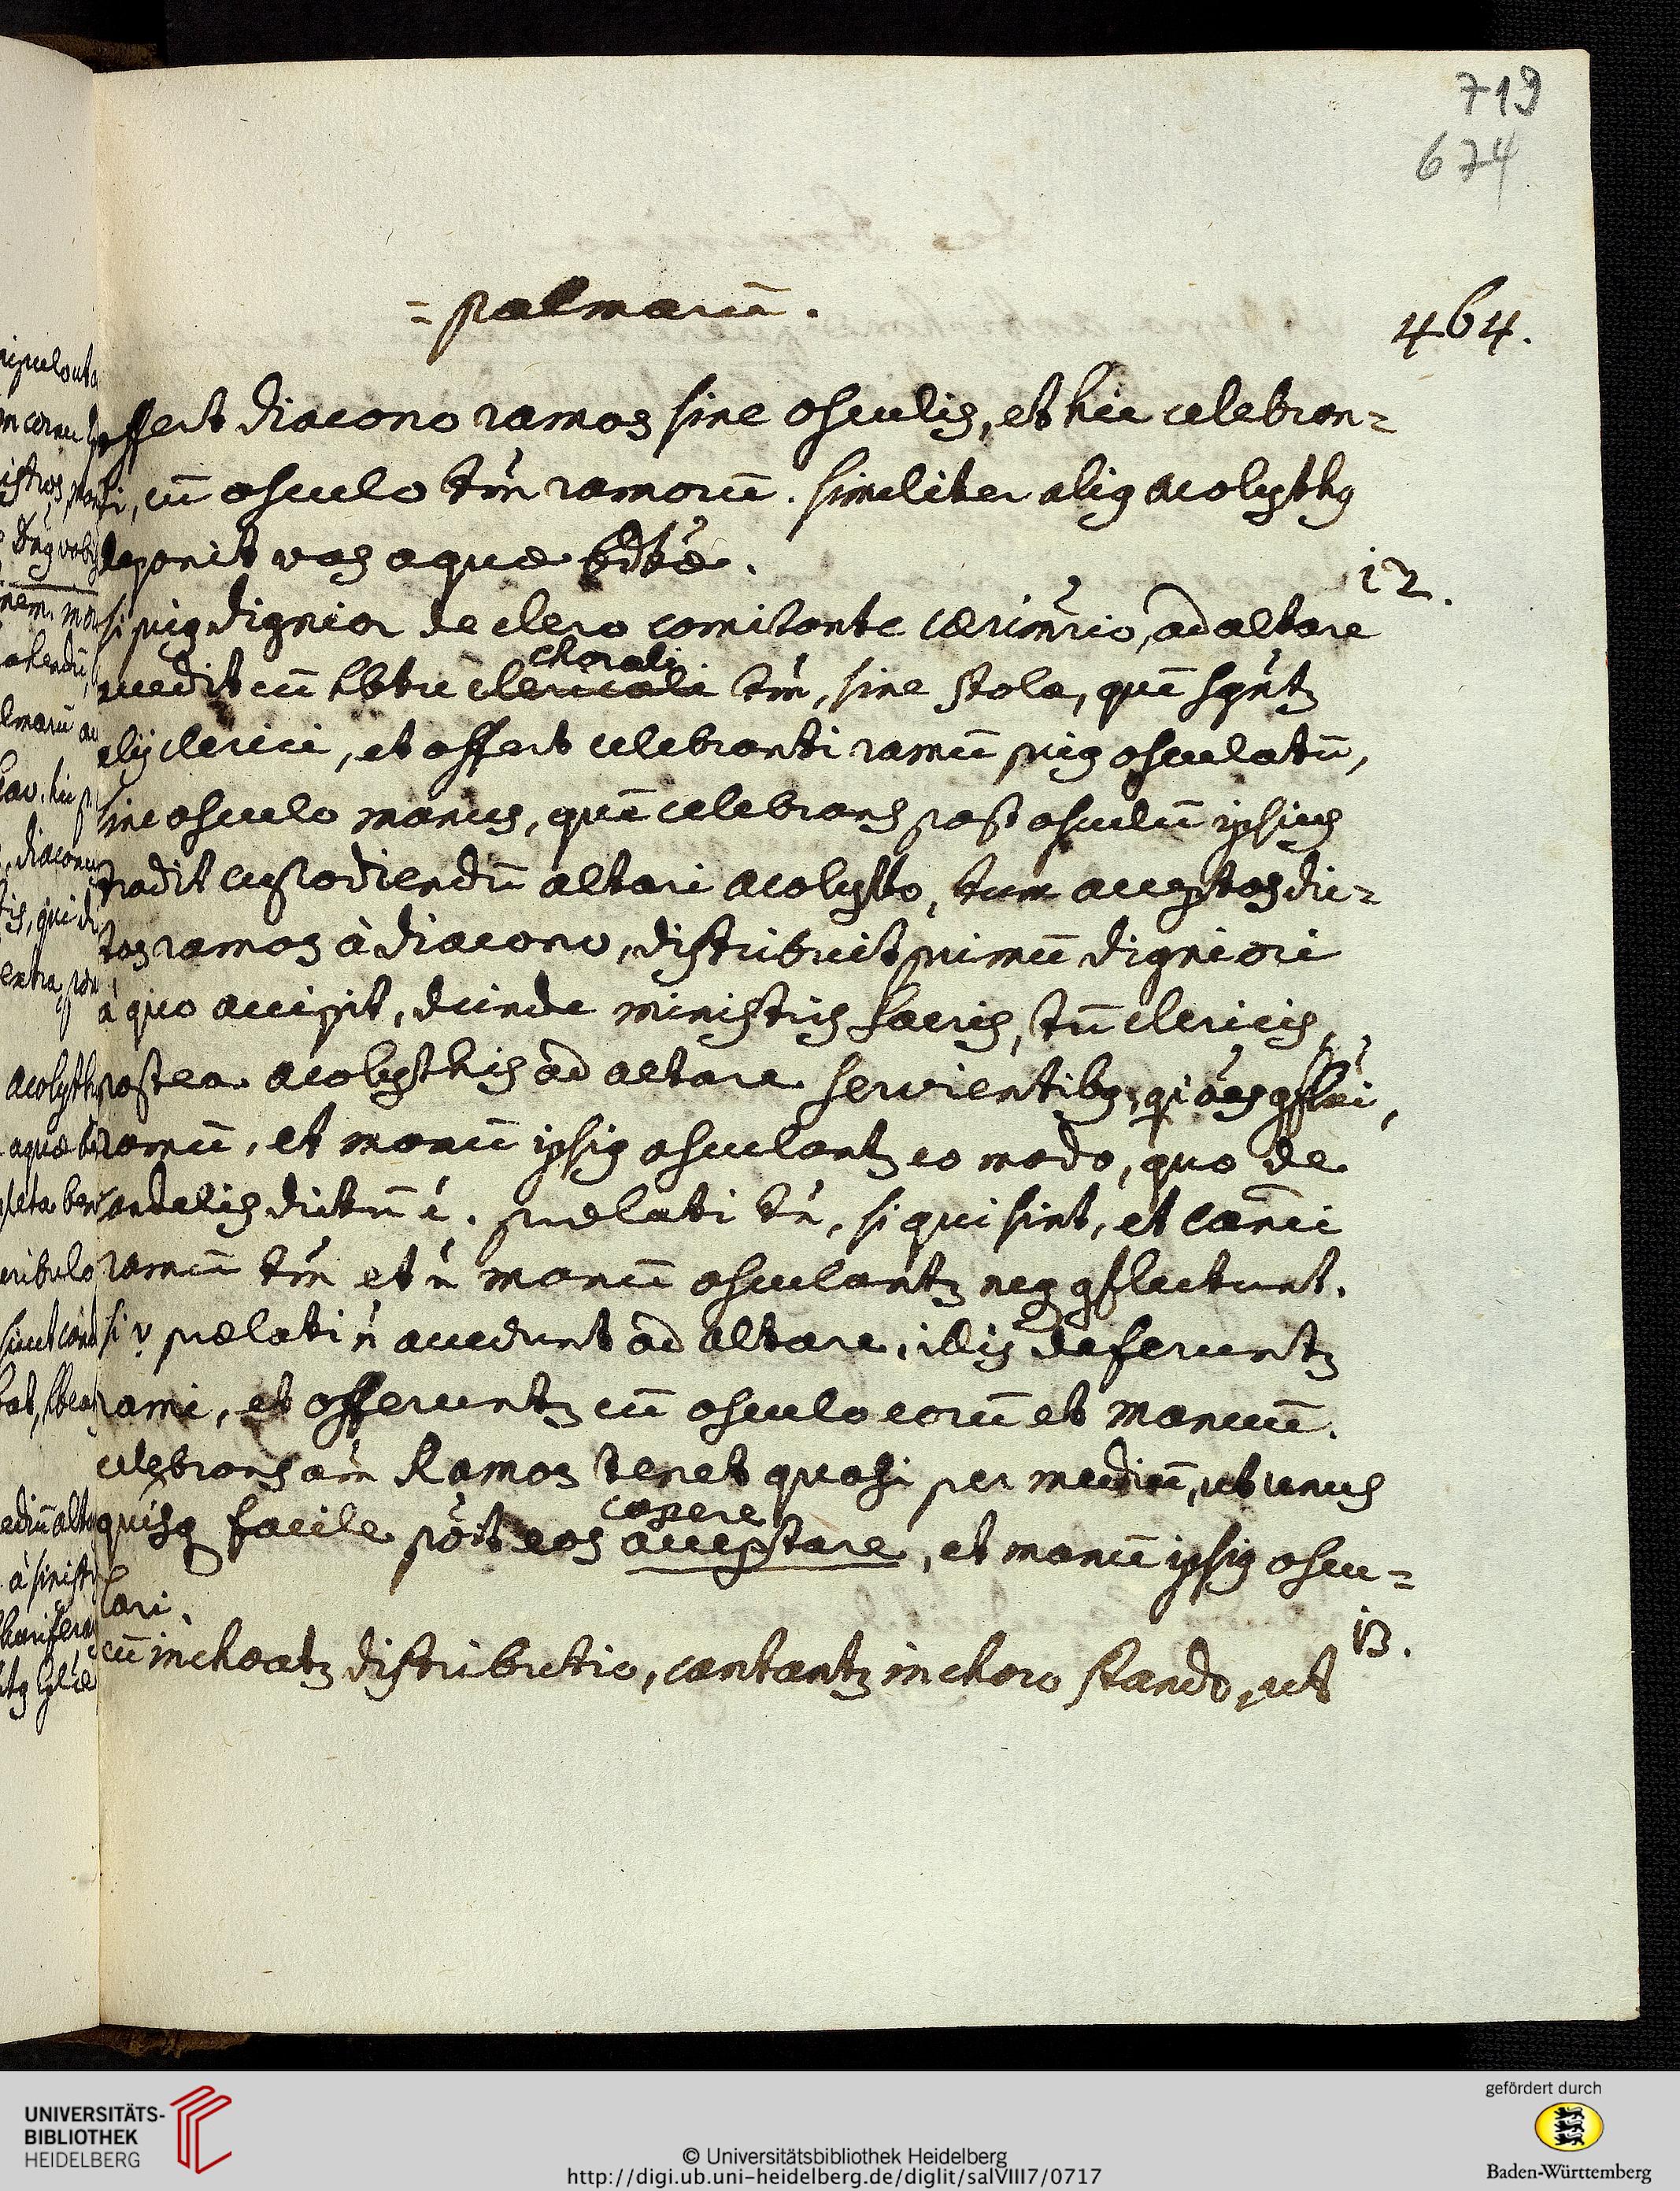 719
674
= palmarū.
464.
offert diacono ramos sine osculis, et hic celebran=
ti, cū osculo tm̄ ramorū. similiter aliq acolythq
deponit vas aquæ bdtæ.
12.
si piq dignior de clero comitante cærim̄rio, ad altare
accedit cū hbtu clericali tm̄, sine stola, quē sqn̄tz
chorali
alij clerici, et offert celebranti ramū priq osculatū,
sine osculo manus, quē celebrans post osculū ipsius
tradit custodiendū altari acolyto, tum acceptos dic=
tos ramos à diacono, distribuit primū digniori
à quo accipit, deinde ministris sacris, tū clericis,
postea acolythis ad altare servientibq, qi oēs gflxi,
ramū, et manū ipsiq osculantz eo modo, quo de
candelis dictū ē. prælati tn̄, si qui sint, et canci
ramum tm̄ et n̄ manū osculantz neq gflectunt.
si v prælati n̄ accedunt ad altare, illis deferuntz
rami, et offeruntz cū osculo eorū et manuū.
celebrans am̄ Ramos tenet quasi per mediū, ut unus
quisq facile pōit eos acceptare, et manū ipsiq oscu=
capere
lari.
13.
cū inchoatz distributio, cantantz in choro stando, ut
UNIVERSITÄTS-
BIBLIOTHEK
HEIDELBERG
© Universitätsbibliothek Heidelberg
http://digi.ub.uni-heidelberg.de/diglit/salVIII7/0717
gefördert durch
Baden-Württemberg